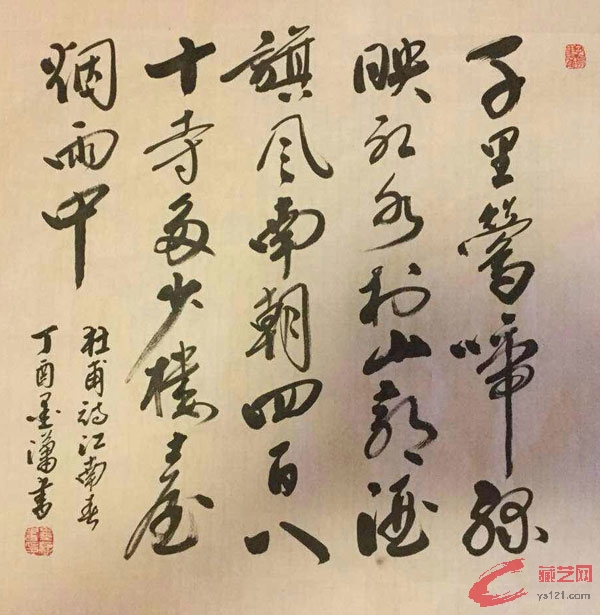 千里鶯啼綠
映红水村山郭酒
旗风南朝四百八
十寺多少樓臺
烟雨中
杜甫诗江南春
丁酉墨瀟书
藏艺网
ys121.com